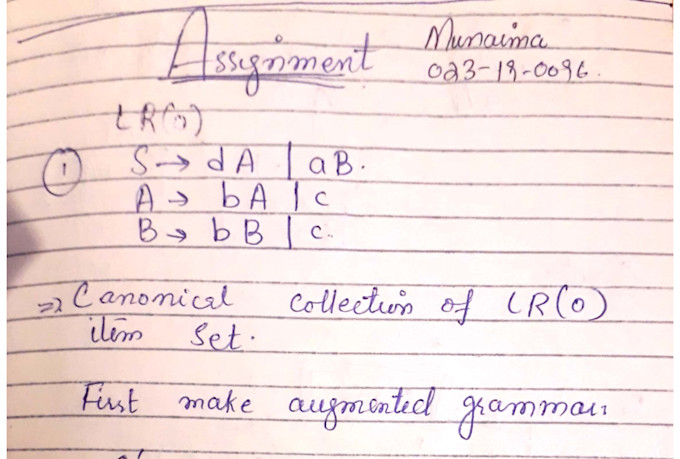 Assignment Munaima
023-19-0096.
LR(0)
① S → dA | aB.
A → bA | c
B → bB | c.
⇒ Canonical collection of LR(0)
item set.
First make augmented grammar: